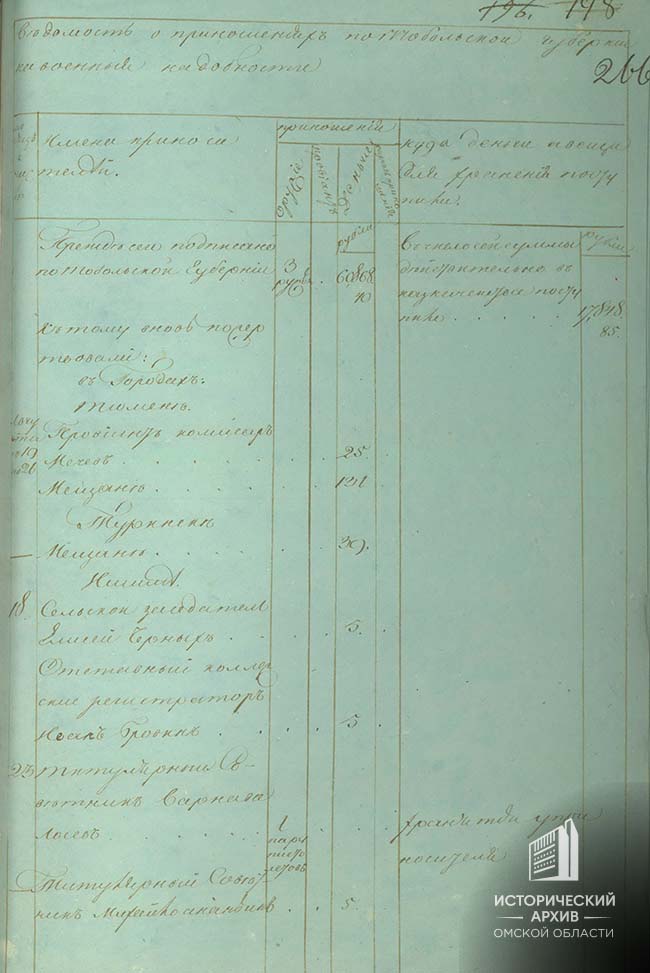 196. 198
Ведомость о приношениях по Тобольской губернии
на военныя надобности
266
Имена приноси
телей.
приношении
оружие
деньгами
рубли
куда деньги и вещи
для хранения посту
пили.
Прежде сего подписано
по Тобольской Губернии
3
ружья
60868
10
В числе сей суммы
действительно в
казначейство посту
пило
рубли
17,848
85.
къ тому вновь пожер
твовали:
въ Городахъ:
Тюмене.
19
20
Провиантъ комиссаръ
Мечевъ . . . . . 25.
Мещане . . . . . 121.
Туринске
— Мещане . . . . . 39.
Ишиме.
18. Сельской заседатель
Елисей Черныхъ . . . 5.
Отставный коллеж
ский регистраторъ
. . . . 5.
23. Титулярный Со-
ветникъ Варнава
Лосевъ . . . . . 1
пара
писто
летовъ
хранится у при
носителя
— Титулярный Совет
никъ . . 5.
ИСТОРИЧЕСКИЙ
АРХИВ
ОМСКОЙ ОБЛАСТИ